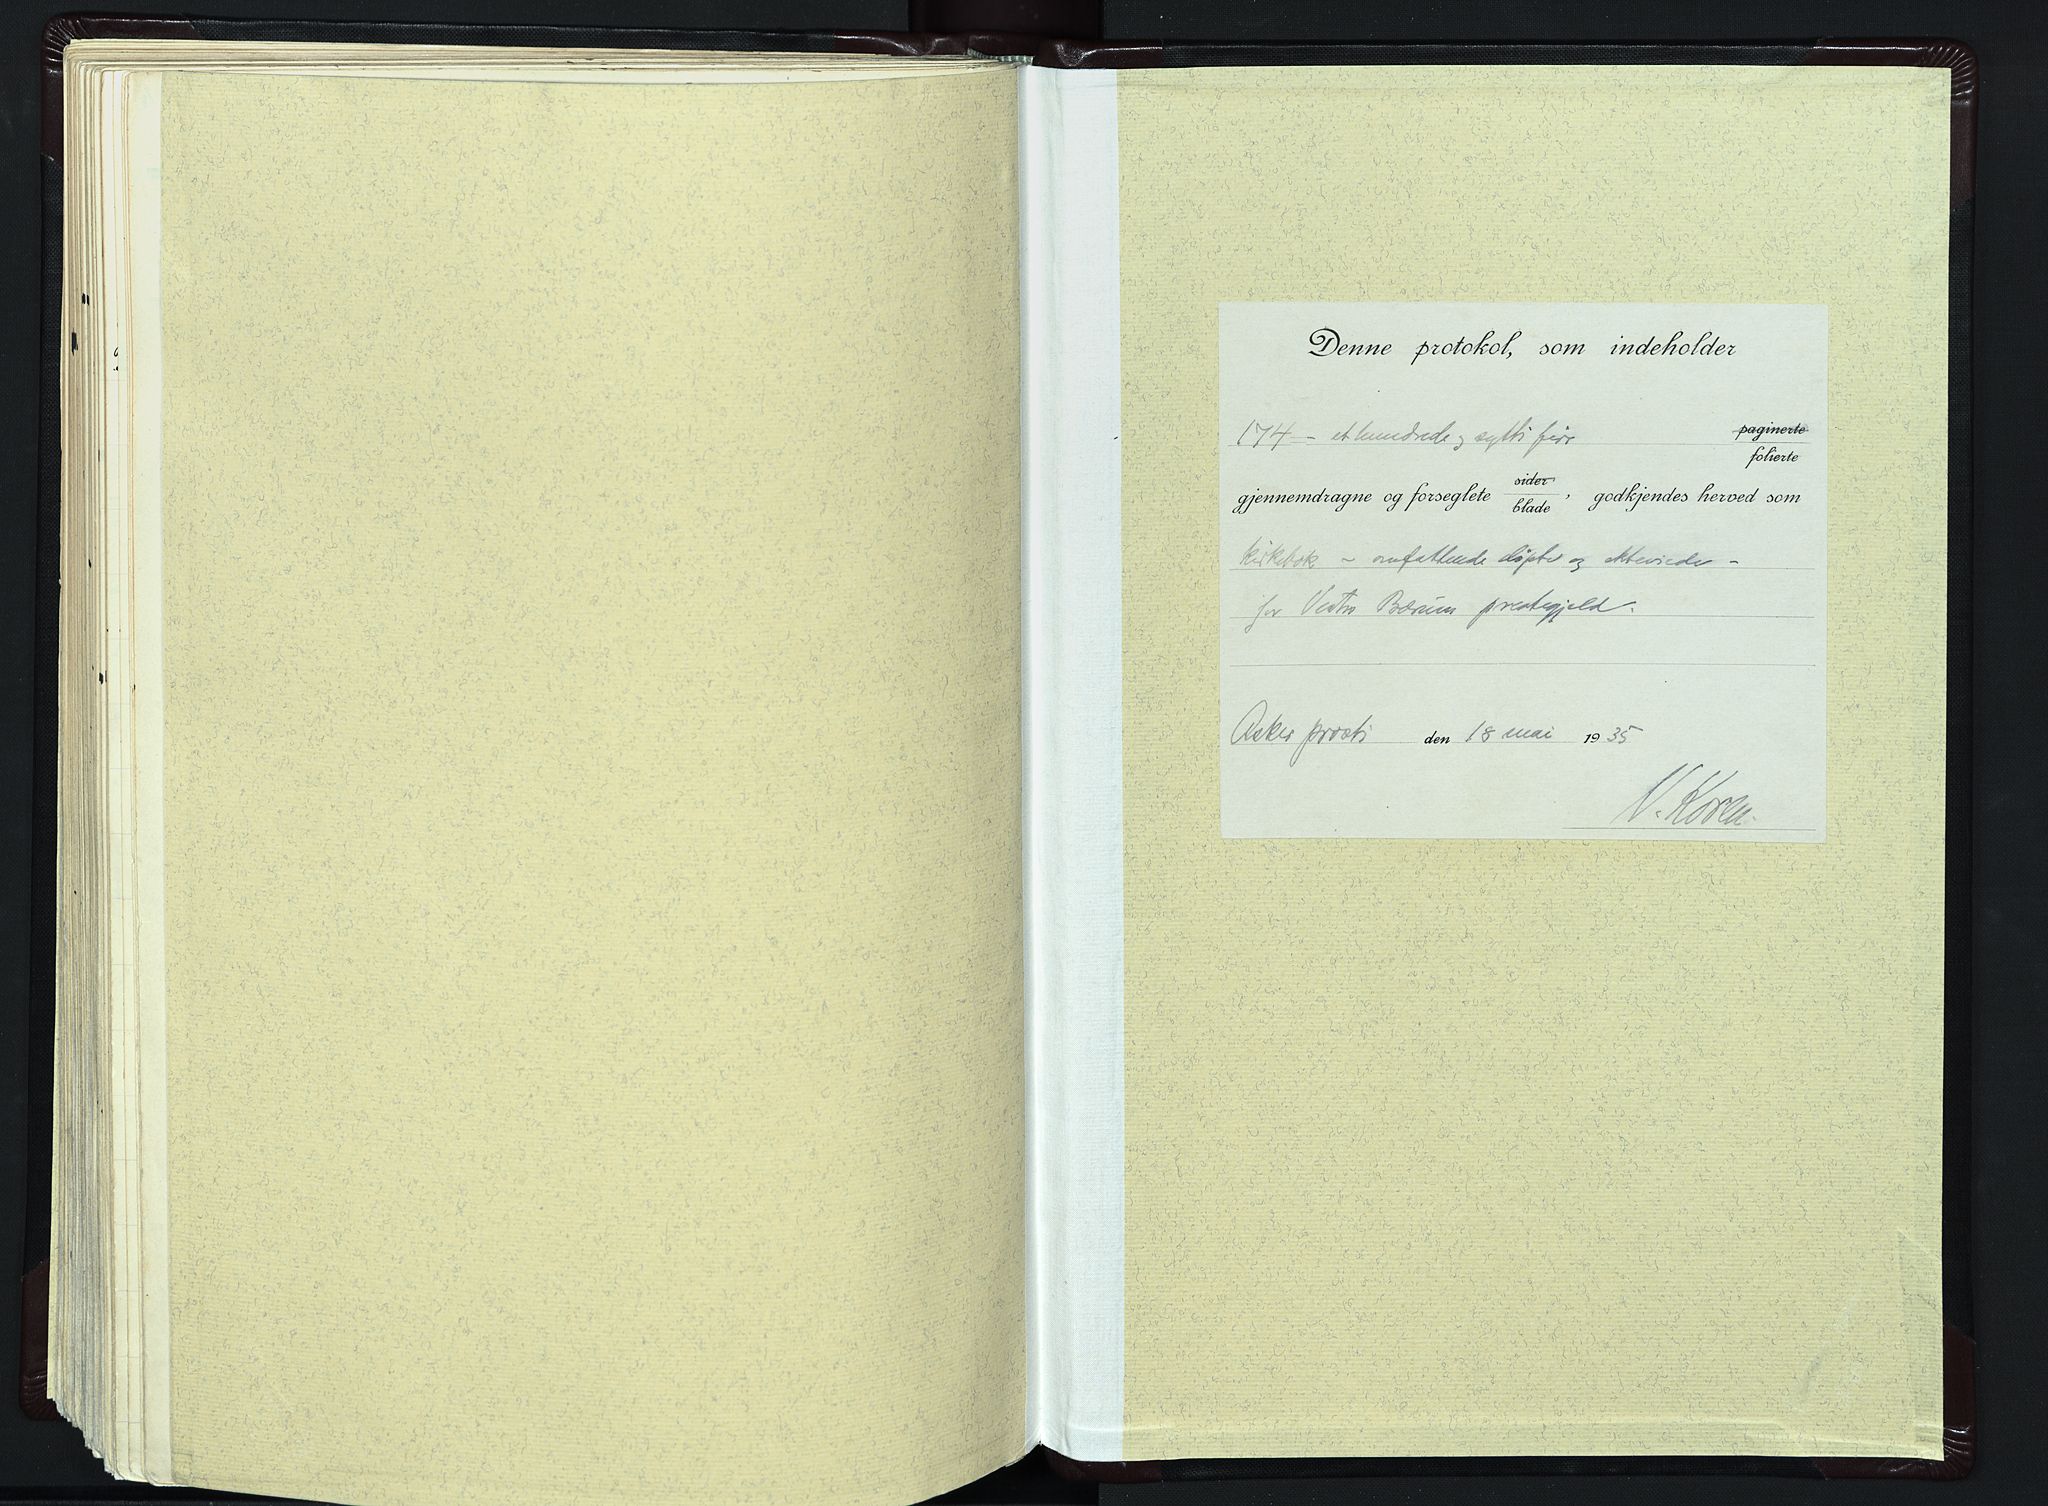 Denne protokol, som indeholder
174 – et hundrede og sytti fire paginerte
folierte
gjennemdragne og forseglete sider blade, godkjendes herved som
kirkebok – omfattende døpte og ekteviede –
for Vestre Bærum prestegjeld.
Asker prosti den 18 mai 1935
V. Koren.